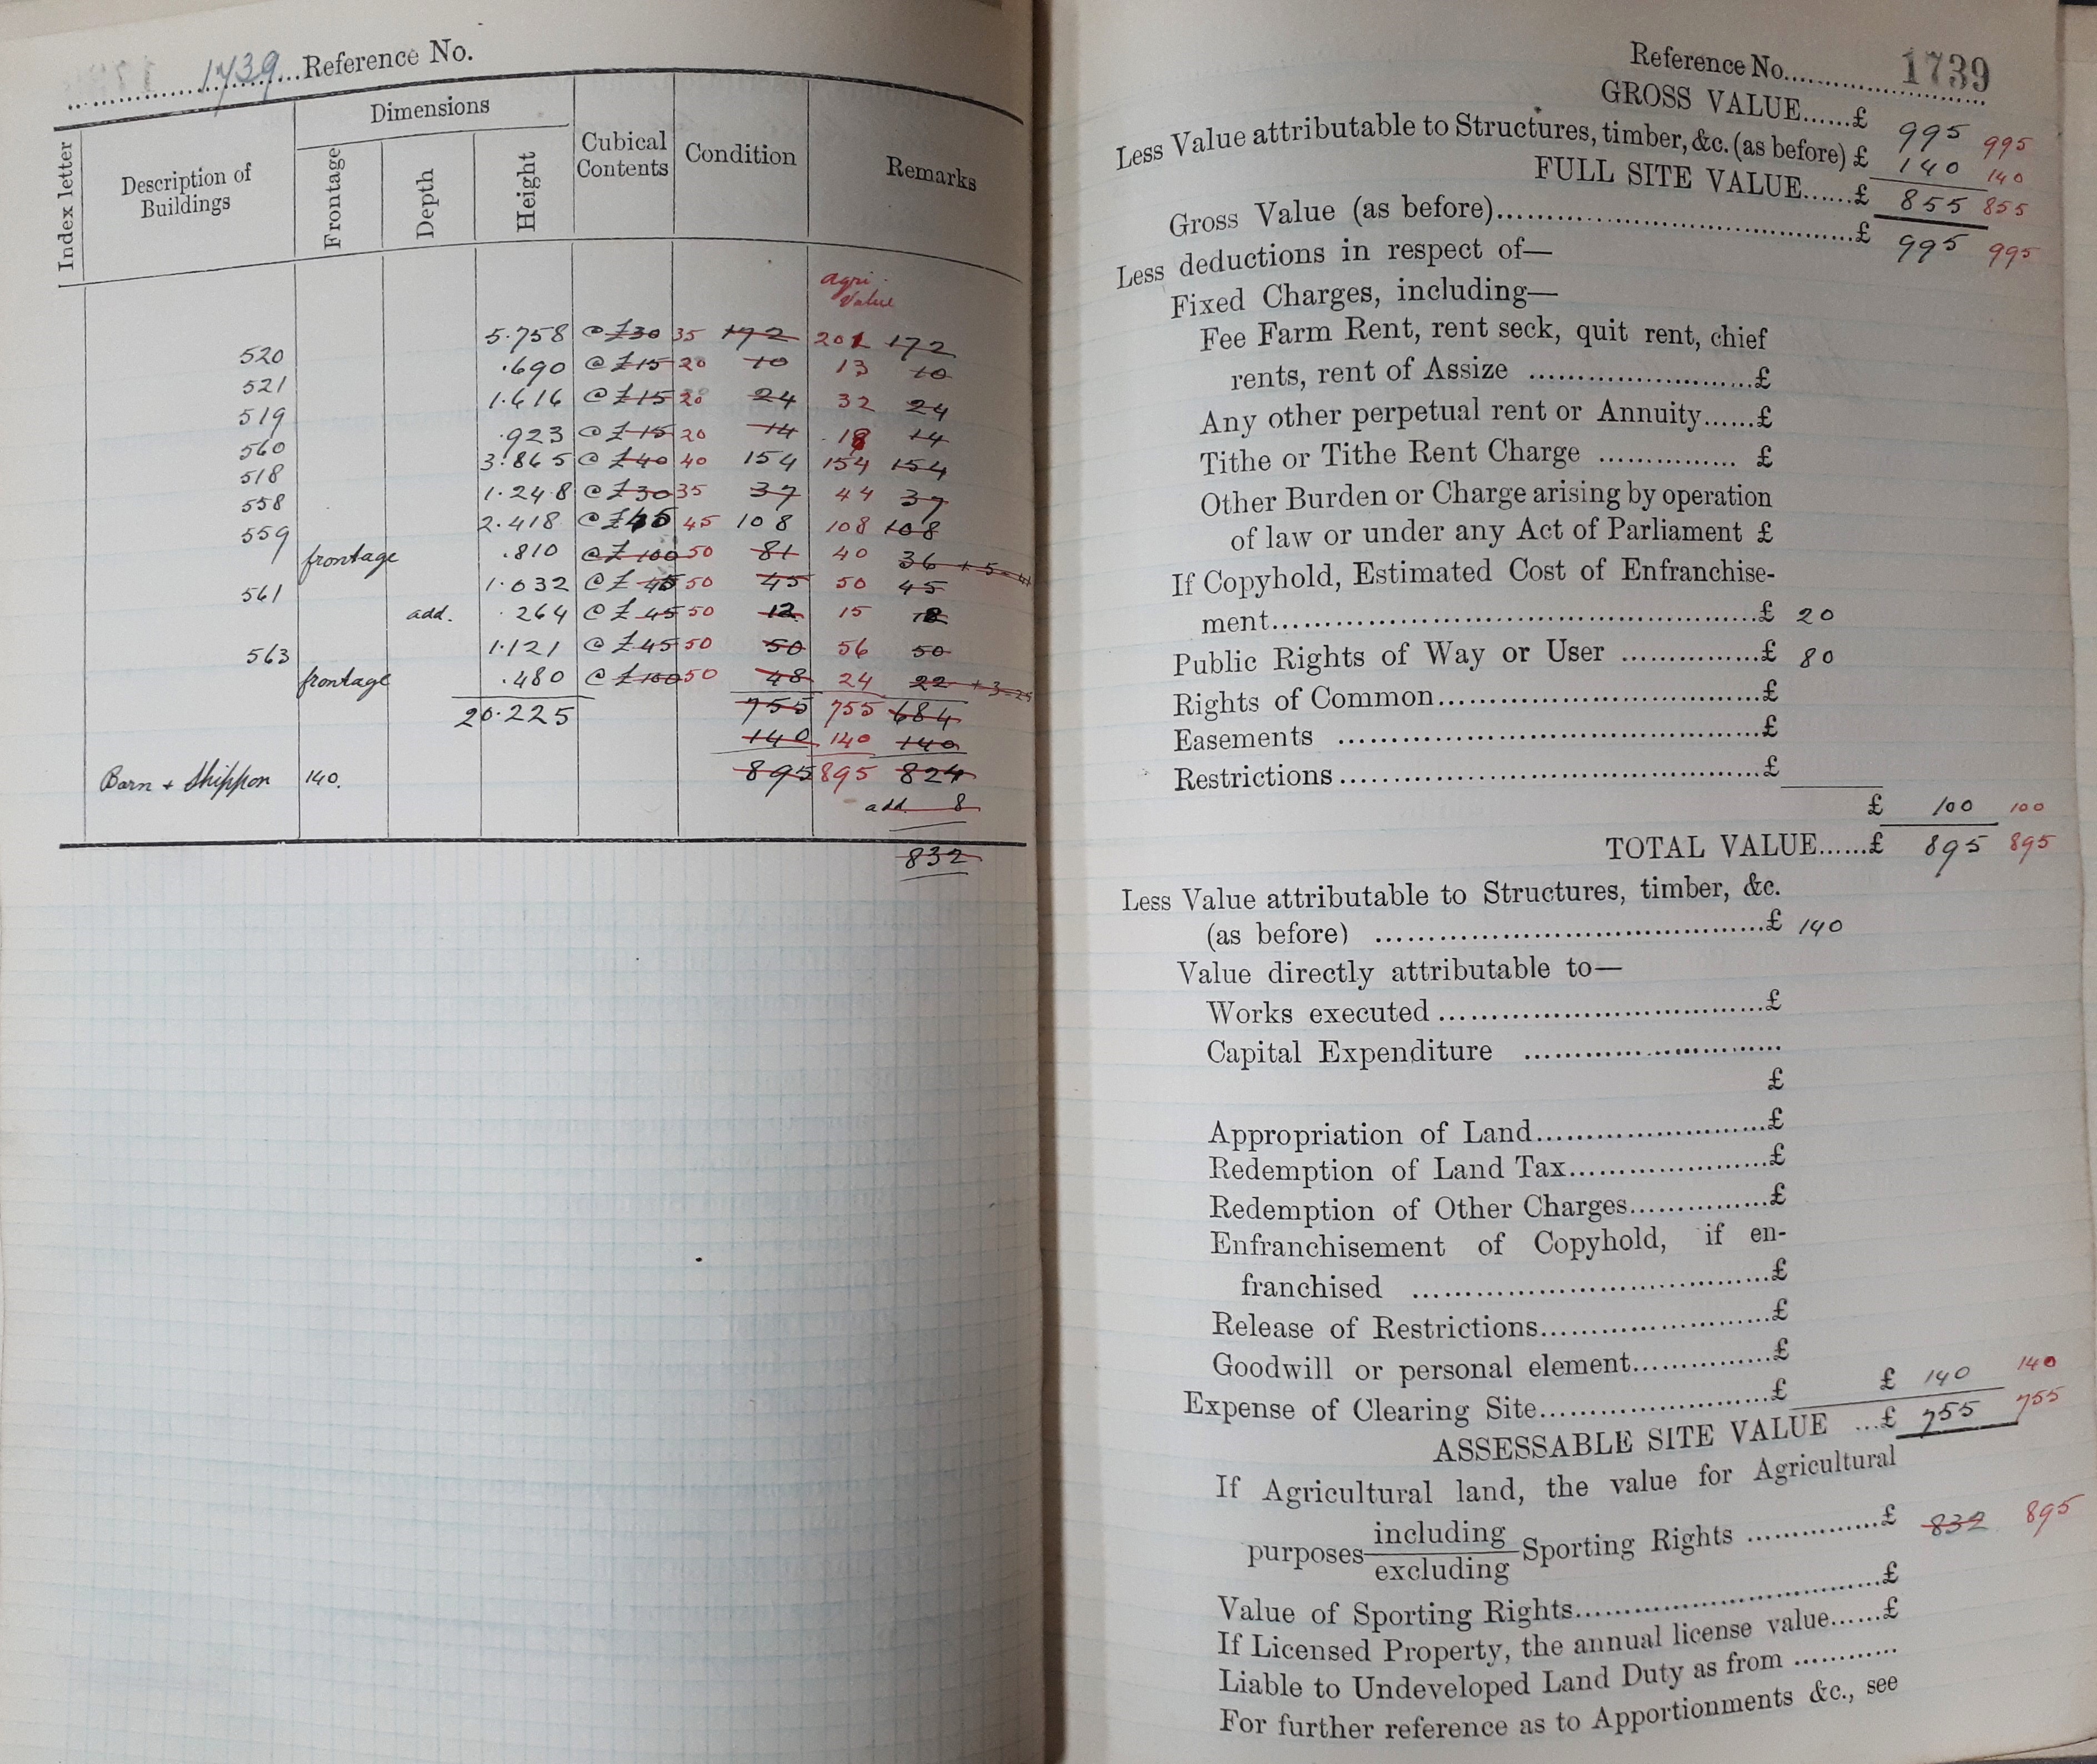 1739 Reference No.
Index letter
Description of Buildings
Dimensions
Frontage
Depth
Height
Cubical Contents
Condition
Remarks
agri. Value
520 5.758 @ £30 35 172 201 172
521 .690 @ £15 20 10 13 10
519 1.616 @ £15 20 24 32 24
560 .923 @ £15 20 14 18 14
518 3.865 @ £40 40 154 154 154
558 1.248 @ £30 35 37 44 37
559 2.418 @ £45 45 108 108 108
frontage .810 @ £100 50 81 40 36 + 5 = 41
561 1.032 @ £45 50 45 50 45
add. .264 @ £45 50 12 15 12
563 1.121 @ £45 50 50 56 50
frontage .480 @ £100 50 48 24 22 + 3 = 25
20.225 755 755 684
140 140 140
Barn + Shippon 140. 895 895 824
add 8
832
Reference No. 1739
GROSS VALUE......£ 995 995
Less Value attributable to Structures, timber, &c. (as before) £ 140 140
FULL SITE VALUE......£ 855 855
Gross Value (as before)......£ 995 995
Less deductions in respect of—
Fixed Charges, including—
Fee Farm Rent, rent seck, quit rent, chief
rents, rent of Assize ......£
Any other perpetual rent or Annuity......£
Tithe or Tithe Rent Charge ...... £
Other Burden or Charge arising by operation
of law or under any Act of Parliament £
If Copyhold, Estimated Cost of Enfranchise-
ment......£ 20
Public Rights of Way or User ......£ 80
Rights of Common......£
Easements ......£
Restrictions......£
£ 100 100
TOTAL VALUE......£ 895 895
Less Value attributable to Structures, timber, &c.
(as before) ......£ 140
Value directly attributable to—
Works executed ......£
Capital Expenditure ......
£
Appropriation of Land......£
Redemption of Land Tax......£
Redemption of Other Charges......£
Enfranchisement of Copyhold, if en-
franchised ......£
Release of Restrictions......£
Goodwill or personal element......£
Expense of Clearing Site......£ £ 140 140
ASSESSABLE SITE VALUE ...£ 755 755
If Agricultural land, the value for Agricultural
purposes including excluding Sporting Rights ......£ 832 895
Value of Sporting Rights......£
If Licensed Property, the annual license value......£
Liable to Undeveloped Land Duty as from ............
For further reference as to Apportionments &c., see